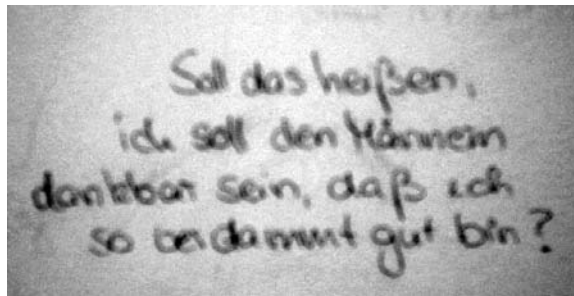 Soll das heißen,
ich soll den Männern
dankbar sein, daß ich
so verdammt gut bin?